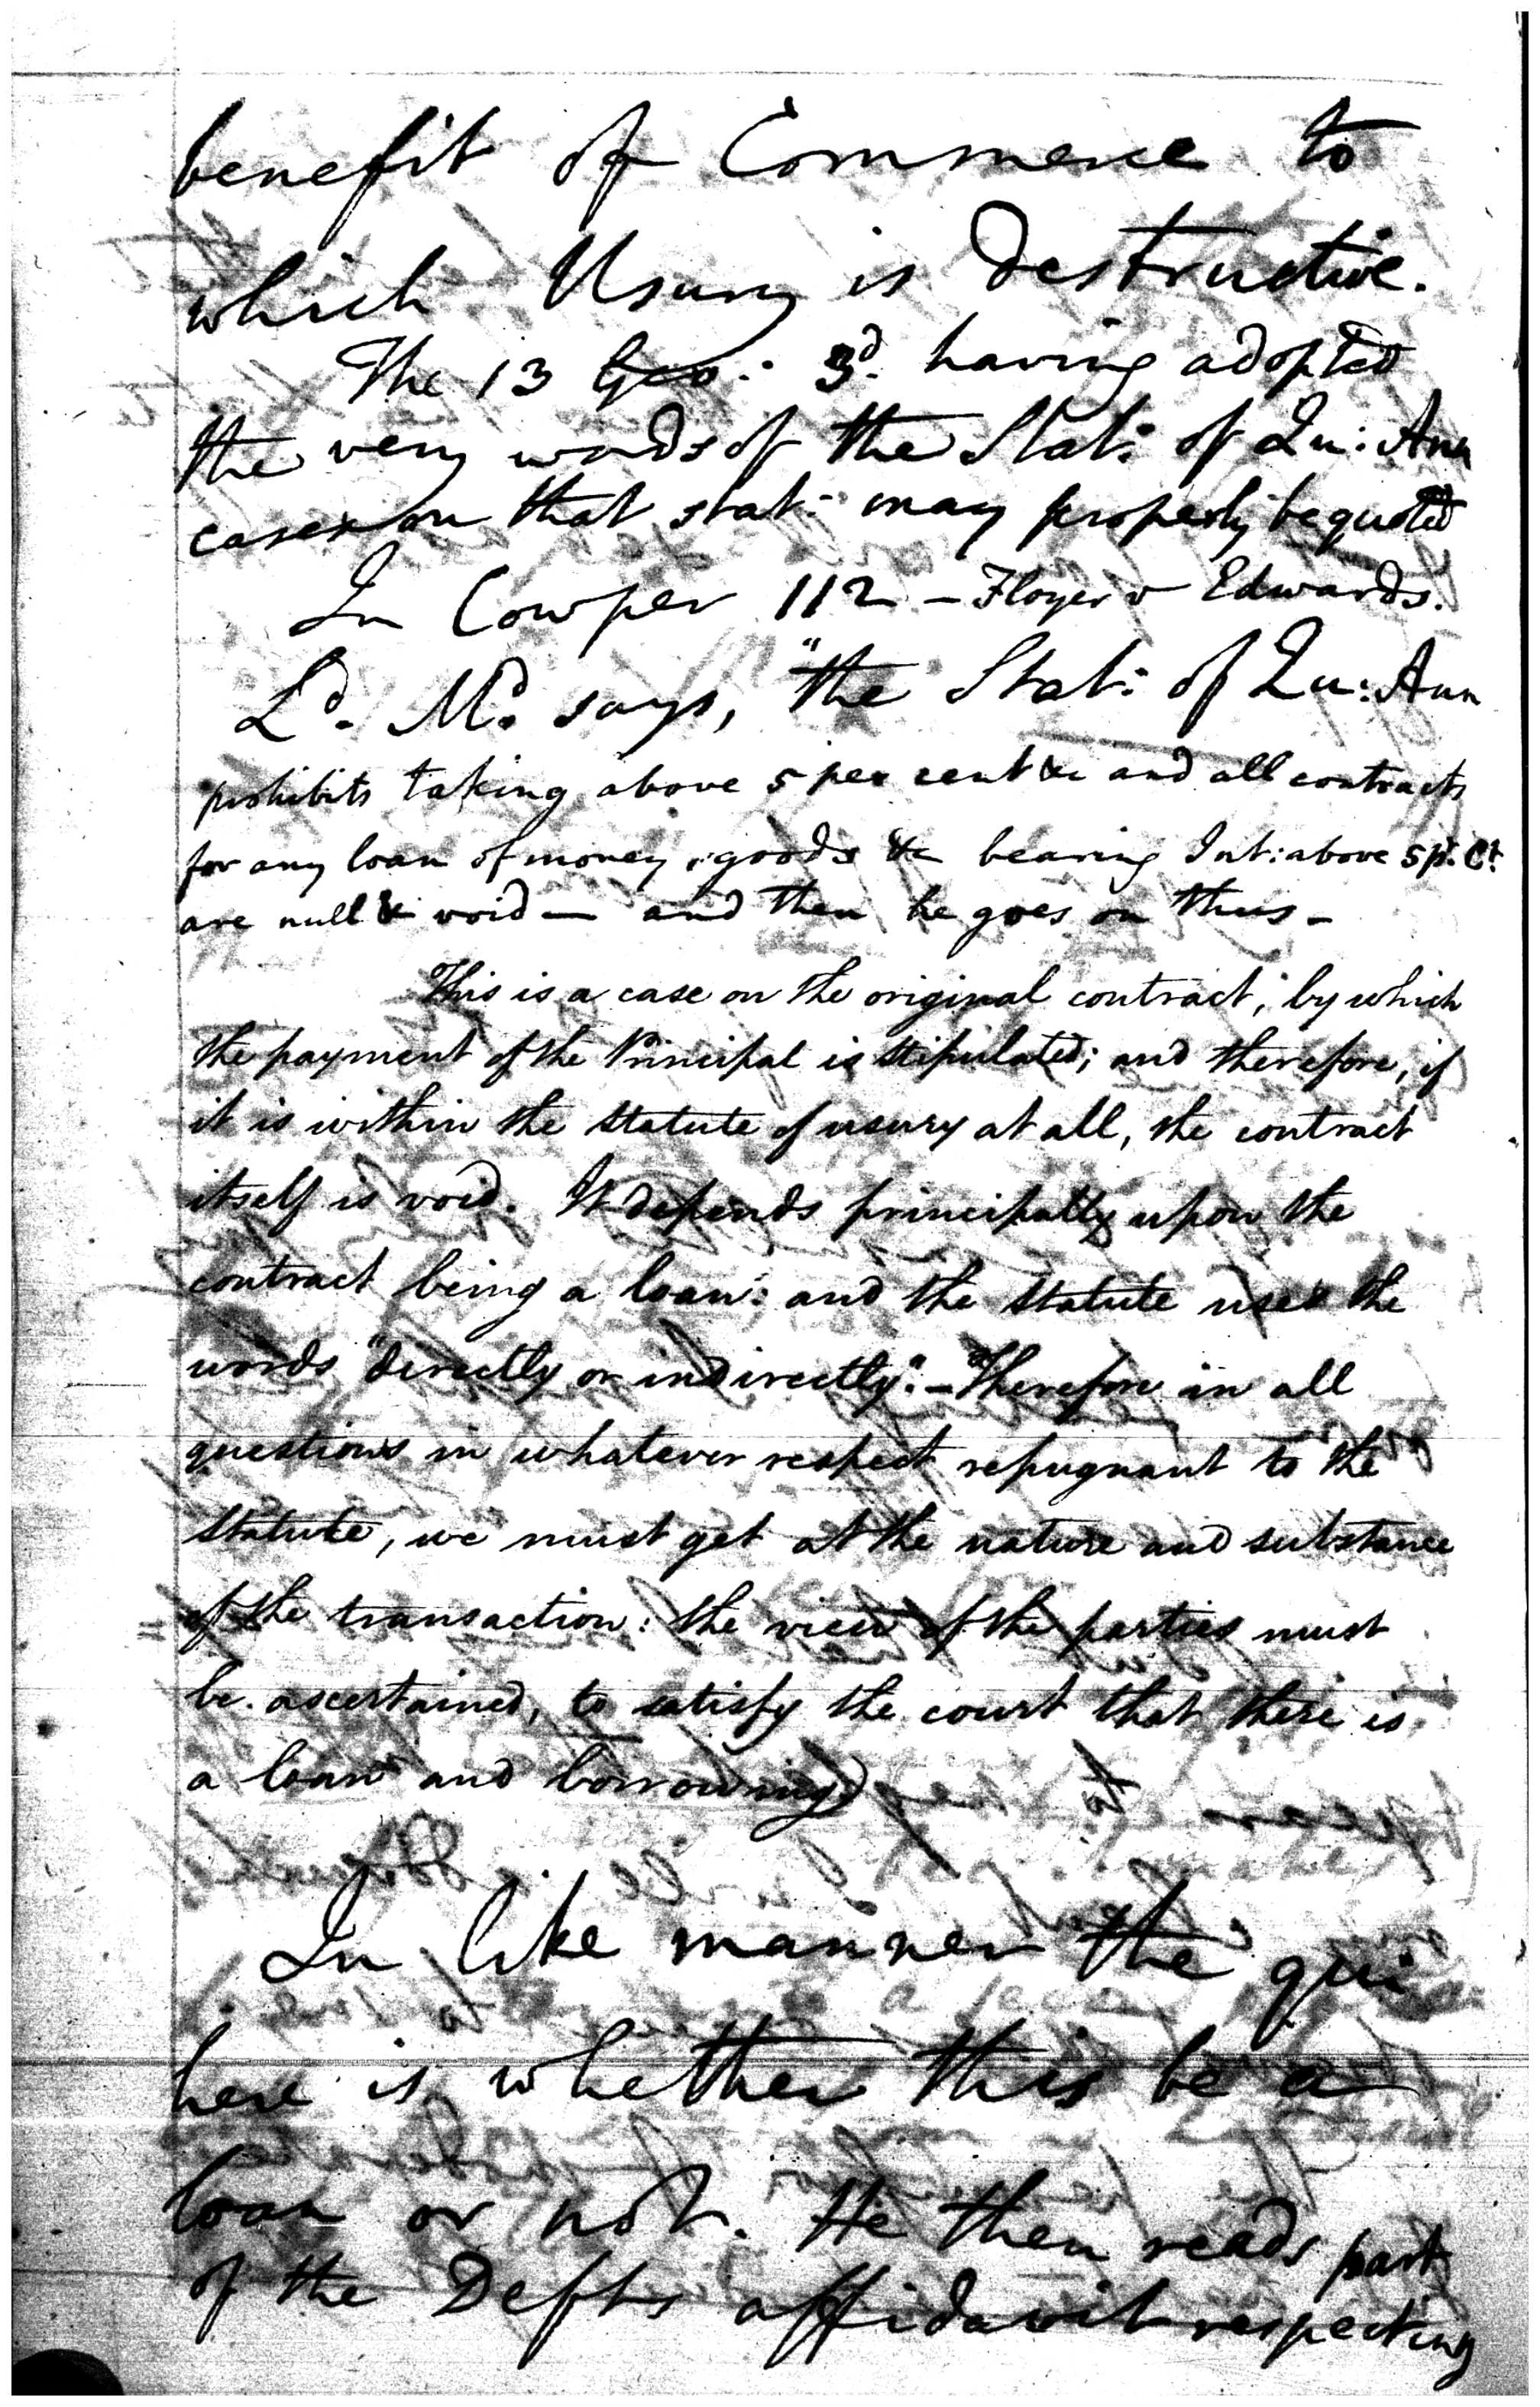 benefit of Commerce to
which Usury is destructive.
The 13 Geo: 3d. having adopted
the very words of the Stat: of Qu: Ann
cases on that stat: may properly be quoted
In Cowper 112 - Floyer v Edwards.
Ld. Md. says, "the Stat: of Qu: Ann
prohibits taking above 5 per cent &c and all contracts
for any loan of money, goods &c bearing Int: above 5 p. Ct.
are null & void — and then he goes on thus -
This is a case on the original contract, by which
the payment of the Principal is stipulated; and therefore, if
it is within the statute of usury at all, the contract
itself is void. It depends principally upon the
contract being a loan: and the statute uses the
words "directly or indirectly". - Therefore in all
questions in whatever respect repugnant to the
statute, we must get at the nature and substance
of the transaction: the view of the parties must
be ascertained, to satisfy the court that there is
a loan and borrowing)
In like manner the qui
here is whether this be a
loan or not. He then reads part
of the Defts affidavit respecting